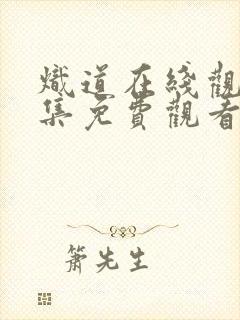 熾道在綫觀
集免費觀看
簫先生